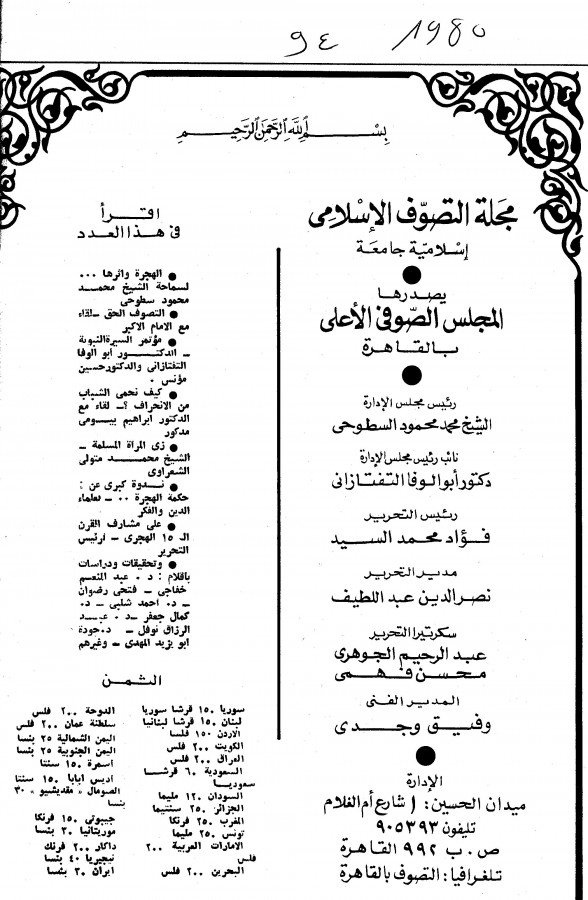 ٩٤ 1980
بِسْمِ اللَّهِ الرَّحْمَنِ الرَّحِيمِ
مجلة التصوّف الإسلامى
إسلامية جامعة
يصدرها
المجلس الصّوفى الأعلى
بالقاهرة
رئيس مجلس الإدارة
الشيخ محمد محمود السطوحى
نائب رئيس مجلس الإدارة
دكتور أبو الوفا التفتازانى
رئيس التحرير
فؤاد محمد السيد
مدير التحرير
نصر الدين عبد اللطيف
سكرتيرا التحرير
عبد الرحيم الجوهرى
محسن فهمى
المدير الفنى
وفيق وجدى
الإدارة
ميدان الحسين: ١ شارع أم الغلام
تليفون ٩٠٥٣٩٣
ص. ب ٩٩٢ القاهرة
تلغرافيا: التصوف بالقاهرة
اقرأ
فى هذا العدد
● الهجرة واثرها ...
لسماحة الشيخ محمد
محمود سطوحى
● التصوف الحق - لقاء
مع الامام الاكبر
● مؤتمر السيرة النبوية
ـ الدكتور ابو الوفا
التفتازانى والدكتور حسين
مؤنس .
● كيف نحمى الشباب
من الانحراف ؟ـ لقاء مع
الدكتور ابراهيم بيومى
مدكور
● زى المرأة المسلمة ـ
الشيخ محمد متولى
الشعراوى
● ندوة كبرى عن :
حكمة الهجرة ٠٠ ـ لعلماء
الدين والفكر
● على مشارف القرن
الـ ١٥ الهجرى ـ لرئيس
التحرير
● وتحقيقات ودراسات
باقلام : د . عبد المنعم
خفاجى ـ فتحى رضوان
ـ د. احمد شلبى ـ د.
كمال جعفر ـ د . عبد
الرزاق نوفل ـ د. جودة
ابو يزيد المهدى ـ وغيرهم
الثمن
سوريا ١٥٠ قرشا سوريا
لبنان ١٥٠ قرشا لبنانيا
الاردن ١٥٠ فلسا
الكويت ٢٠٠ فلس
العراق ٢٠٠ فلس
السعودية ٦٠ قرشا
سعوديا
السودان ١٢٠ مليما
الجزائر ٢٥٠ سنتيما
المغرب ٢٥٠ فرنكا
تونس ٢٥٠ مليما
الامارات العربية ٢٠٠
فلس
البحرين ٢٠٠ فلس
الدوحة ٢٠٠ فلس
سلطنة عمان ٢٠٠ فلس
اليمن الشمالية ٢٥ بنسا
اليمن الجنوبية ٢٥ بنسا
اسمرة ١٥٠ سنتا
اديس ابابا ١٥٠ سنتا
الصومال « مقديشيو » ٣٠
بنسا
جيبوتى ١٥٠ فرنكا
موريتانيا ٣٠ بنسا
داكار ٢٠٠ فرنك
نيجيريا ٤٠ بنسا
ايران ٣٠ بنسا